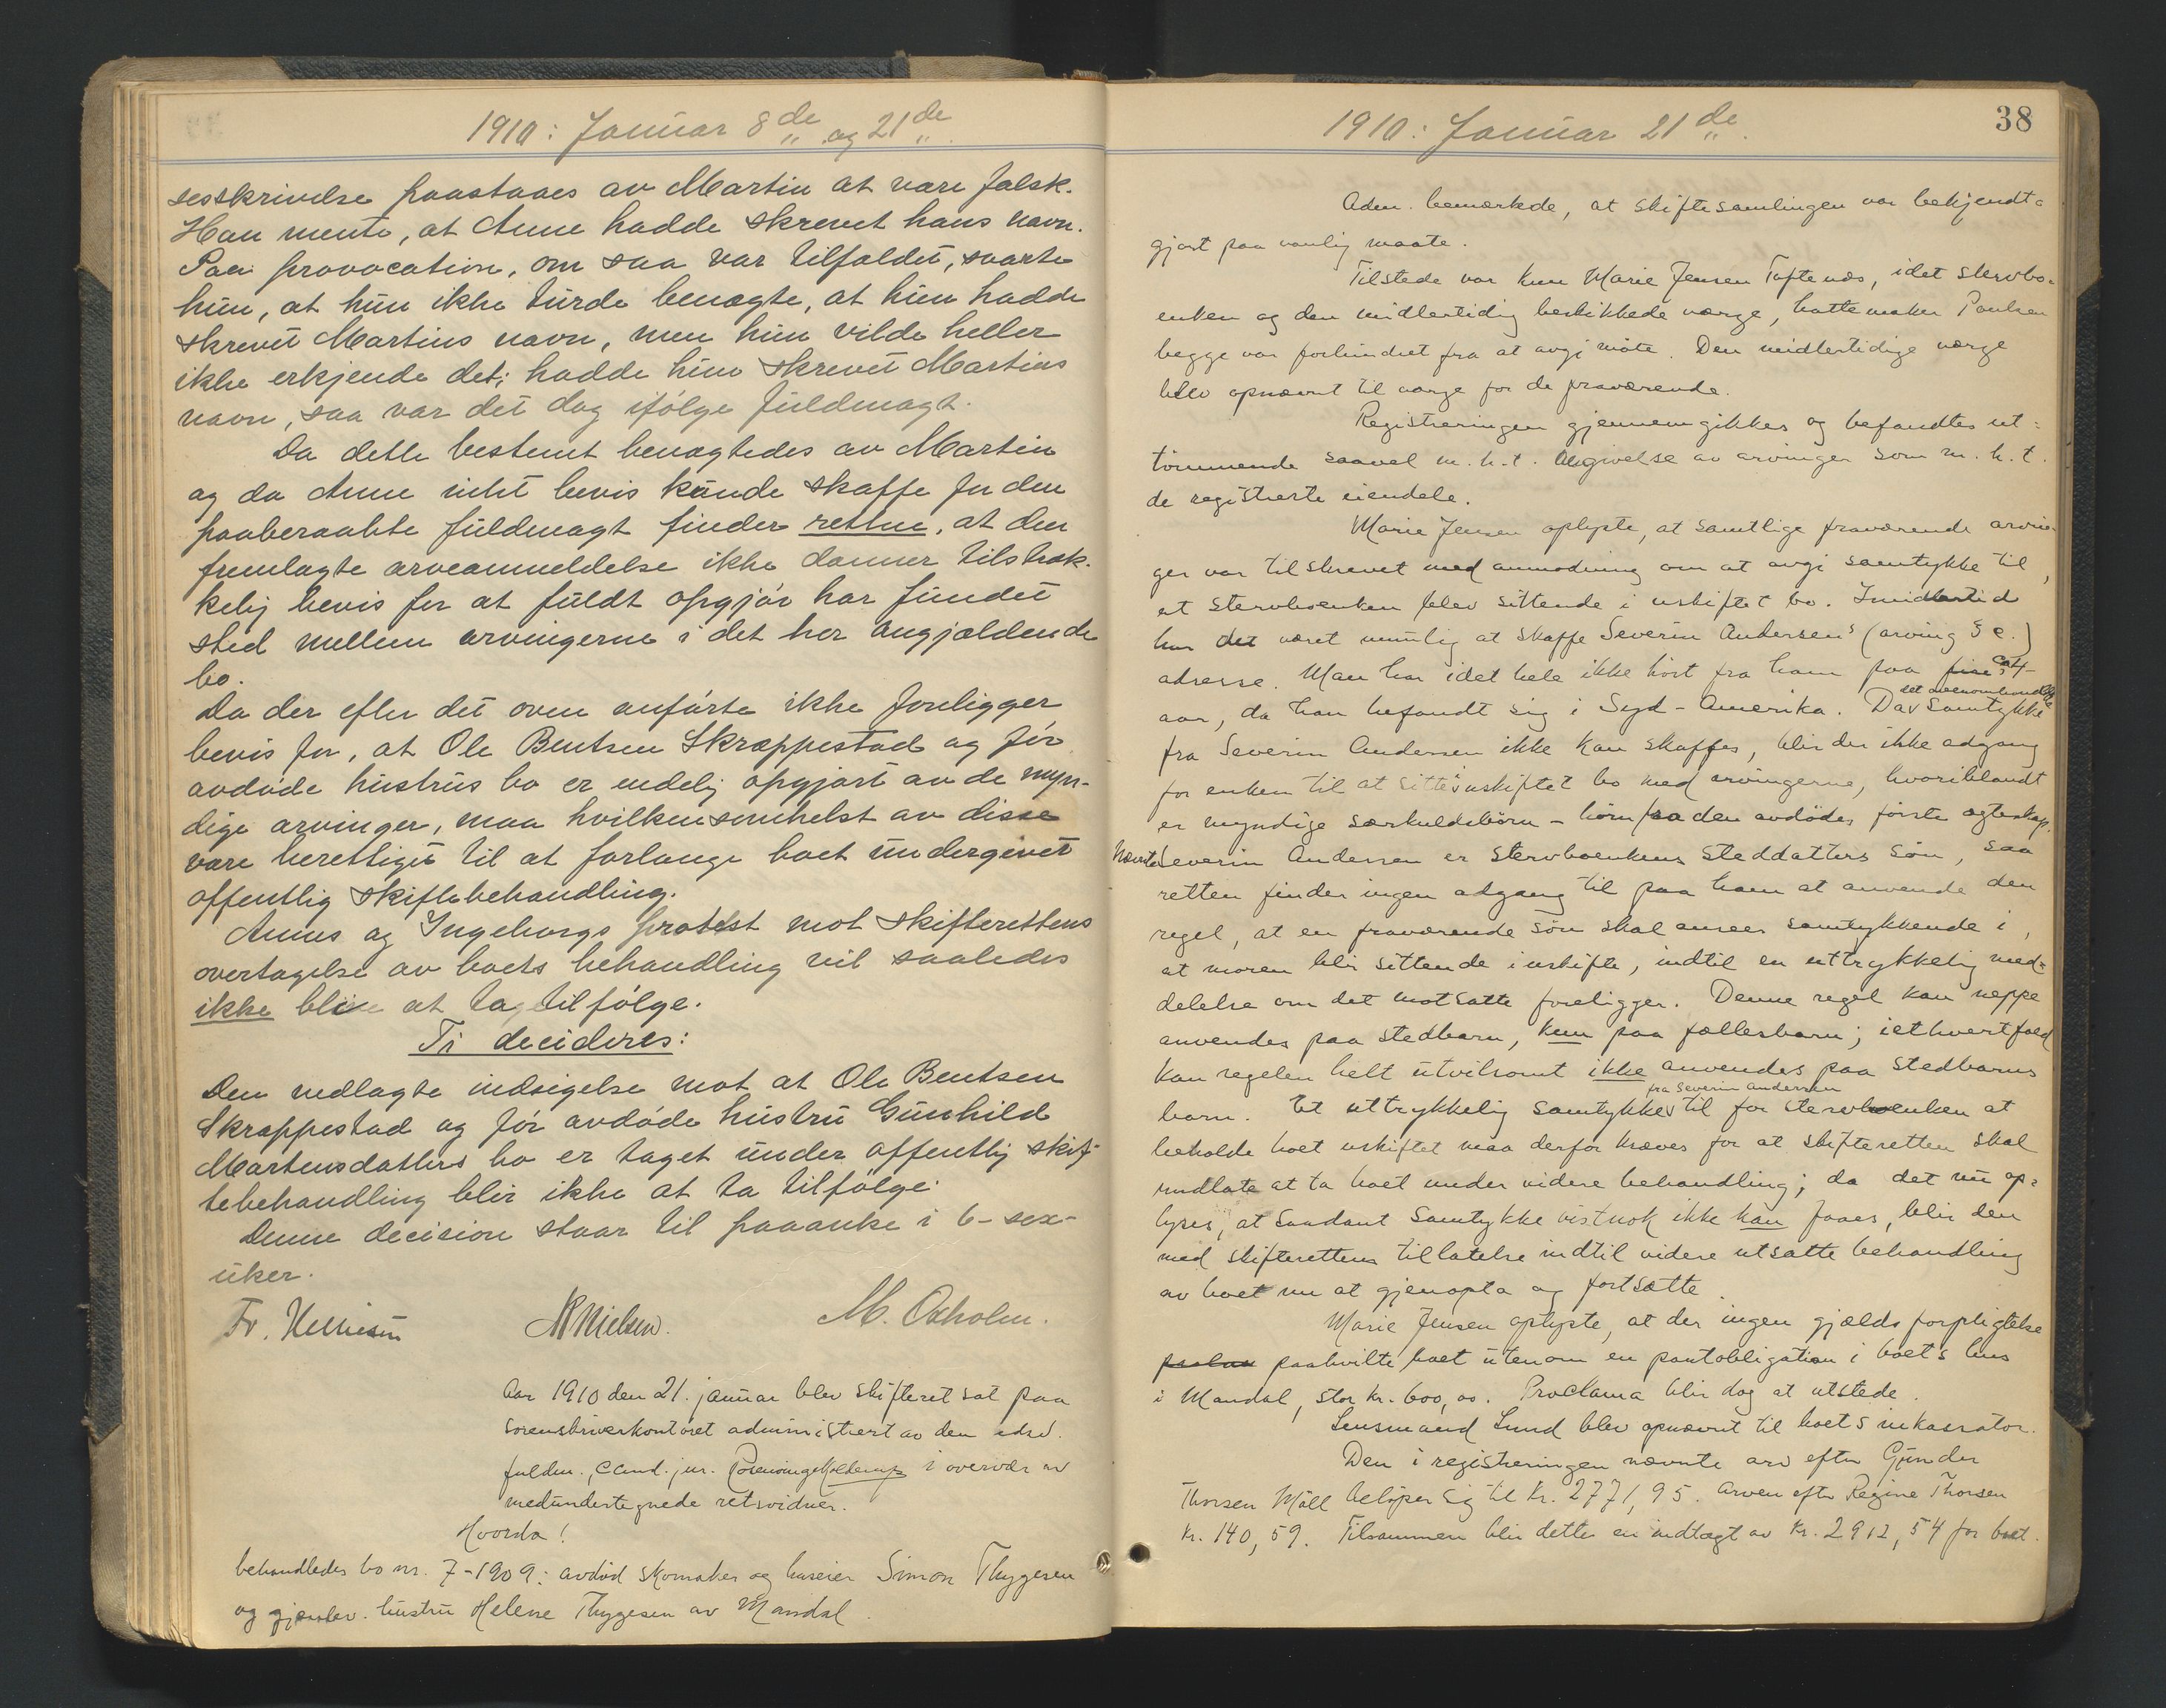 1910: Januar 8de og 21de
sesskrivelse paastaaes av Martin at være falsk.
Han mente, at Anne hadde skrevet hans navn.
Paa provocation, om saa var tilfældet, svarte
hun, at hun ikke turde benægte, at hun hadde
skrevet Martins navn, men hun vilde heller
ikke erkjende det; hadde hun skrevet Martins
navn, saa var det dog ifølge fuldmagt.
Da dette bestemt benægtedes av Martin
og da Anne intet bevis kunde skaffe for den
paaberaabte fuldmagt finder retten, at den
fremlagte arveanmeldelse ikke danner tilstræk-
kelig bevis for at fuldt opgjør har fundet
sted mellem arvingerne i det her angjældende
bo.
Da der efter det oven anførte ikke foreligger
bevis for, at Ole Bentsen Skrappestad og før
avdøde hustrus bo er endelig opgjort av de myn-
dige arvinger, maa hvilkensomhelst av disse
være berettiget til at forlange boet undergivet
offentlig skiftebehandling.
Annes og Ingeborgs protest mot skifterettens
overtagelse av boets behandling vil saaledes
ikke bli at ta tilfølge.
Ti decideres:
Den nedlagte indsigelse mot at Ole Bentsen
Skrappestad og før avdøde hustru Gunhild
Martensdatters bo er taget under offentlig skif-
tebehandling blir ikke at ta tilfølge.
Denne decision staar til paaanke i 6-sex-
uker.
NPNielsen. M. Oxholm.
Aar 1910 den 21. januar blev skifteret sat paa
sorenskriverkontoret administrert av den edsv.
fuldm., cand. jur. i overvær av
medundertegnede retsvidner.
Hvorda!
behandledes bo nr. 7-1909: avdød skomaker og huseier Simon Thygesen
og gjenlev. hustru Helene Thygesen av Mandal.
38
1910: Januar 21de
Adm. bemerkede, at skiftesamlingen var bekjendt-
gjort paa vanlig maate.
Tilstede var kun Marie Jensen Toftenes, idet stervbo-
enken og den midlertidig beskikkede værge, hattemaker Poulsen
begge var forhindret fra at avgi møte. Den midlertidige værge
blev opnævnt til værge for de fraværende.
Registreringen gjennemgikkes og befandtes ut-
tømmende saavel m.h.t. angivelse av arvinger som m.h.t.
de registrerte eiendele.
Marie Jensen oplyste, at samtlige fraværende arvin-
ger var tilskrevet med anmodning om at avgi samtykke til,
at stervboenken blev sittende i uskiftet bo. Imidlertid
har det været umulig at skaffe Severin Andersens (arving 3 e.)
adresse. Man har idet hele ikke hørt fra ham paa ca 4
aar, da han befandt sig i Syd-Amerika. Da det ovenomhandlede samtykke
fra Severin Andersen ikke kan skaffes, blir der ikke adgang
for enken til at sitte i uskiftet bo med arvingerne, hvoriblandt
er myndige særkuldsbørn - børn fra den avdødes første egteskap.
Nævnte Severin Andersen er stervboenkens steddatters søn, saa
retten finder ingen adgang til paa ham at anvende den
regel, at en fraværende søn skal ansees samtykkende i,
at moren blir sittende i uskifte, indtil en uttrykkelig med-
delelse om det motsatte foreligger. Denne regel kan neppe
anvendes paa stedbarn, kun paa fællesbarn; iethvertfald
kan regelen helt utvilsomt ikke anvendes paa stedbarns
barn. Et uttrykkelig samtykke fra Severin Andersen til for stervboenken at
beholde boet uskiftet maa derfor kræves for at skifteretten skal
undlate at ta boet under videre behandling; da det nu op-
lyses, at saadant samtykke vistnok ikke kan faaes, blir den
med skifterettens tillatelse indtil videre utsatte behandling
av boet nu at gjenopta og fortsætte.
Marie Jensen oplyste, at der ingen gjældsforpligtelse
paahvilte boet utenom en pantobligation i boets hus
i Mandal, stor kr. 600,00. Proclama blir dog at utstede.
Lensmand Lund blev opnævnt til boets inkassator.
Den i registreringen nævnte arv efter Gunder
Thorsen Møll beløper sig til kr. 2771,95. Arven efter Regine Thorsen
kr. 140,59. Tilsammen blir dette en indtægt av kr. 2912,54 for boet.